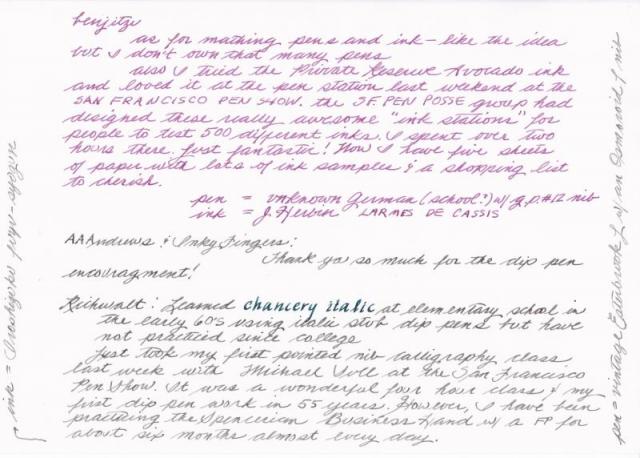 benjitzu
as for mathing pens and ink - like the idea
but I don't own that many pens
also I tried the Private Reserve Avocado ink
and loved it at the pen station last weekend at the
SAN FRANCISCO PEN SHOW. the SF PEN POSSE group had
designed these really awesome "ink stations" for
people to test 500 different inks. I spent over two
hours there. Just fantastic! Now I have five sheets
of paper with lots of ink samples & a shopping list
to cherish.
pen = unknown German (school?) w/ g.p. #12 nib
ink = J. Herbin LARMES DE CASSIS
AAAndrews & Inky Fingers:
Thank you so much for the dip pen
encouragment!
Richwalt: Learned chancery italic at elementary school in
the early 60's using italic stub dip pens but have
not practiced since college
Just took my first pointed nib calligraphy class
last week with Michael Sull at the San Francisco
Pen Show. It was a wonderful four hour class & my
first dip pen work in 55 years. However, I have been
practicing the Spencerian Business Hand w/ a FP for
about six months almost every day.
ink = Iroshizuku fuyu-syogun
pen = vintage Esterbrook J w/ an nib